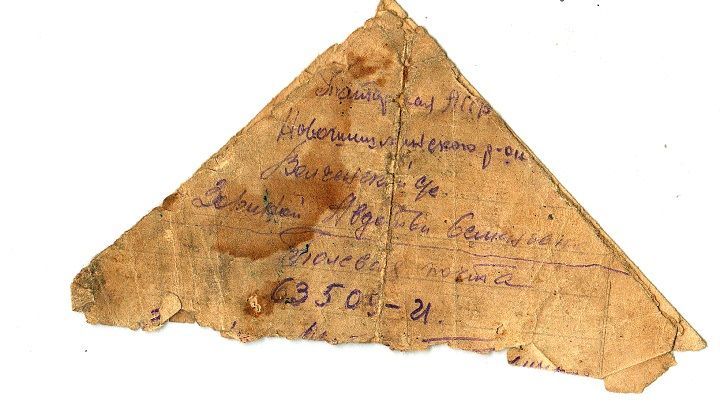 Татарская АССР
Новошешминского р-он
Волчинский с/с
Зориной Авдотьи Семеновне
Полевая почта
63505-И.